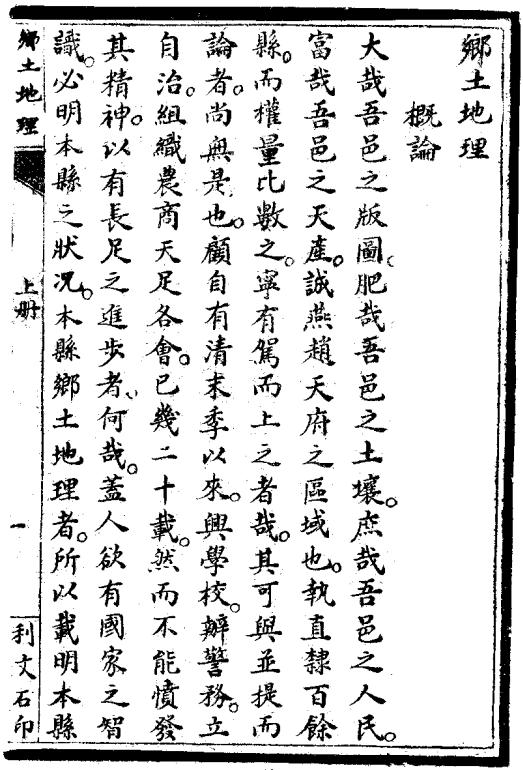 鄉土地理
概論
大哉吾邑之版圖。肥哉吾邑之土壤。庶哉吾邑之人民。
富哉吾邑之天產。誠燕趙天府之區域也。執直隸百餘
縣。而權量比數之。寧有駕而上之者哉。其可與並提而
論者。尚無是也。顧自有清末季以來。興學校。辦警務。立
自治。組織農商天足各會。已幾二十載。然而不能憤發
其精神。以有長足之進步者、何哉。蓋人欲有國家之智
識。必明本縣之狀況。本縣鄉土地理者。所以載明本縣
鄉土地理
上册
一
利文石印